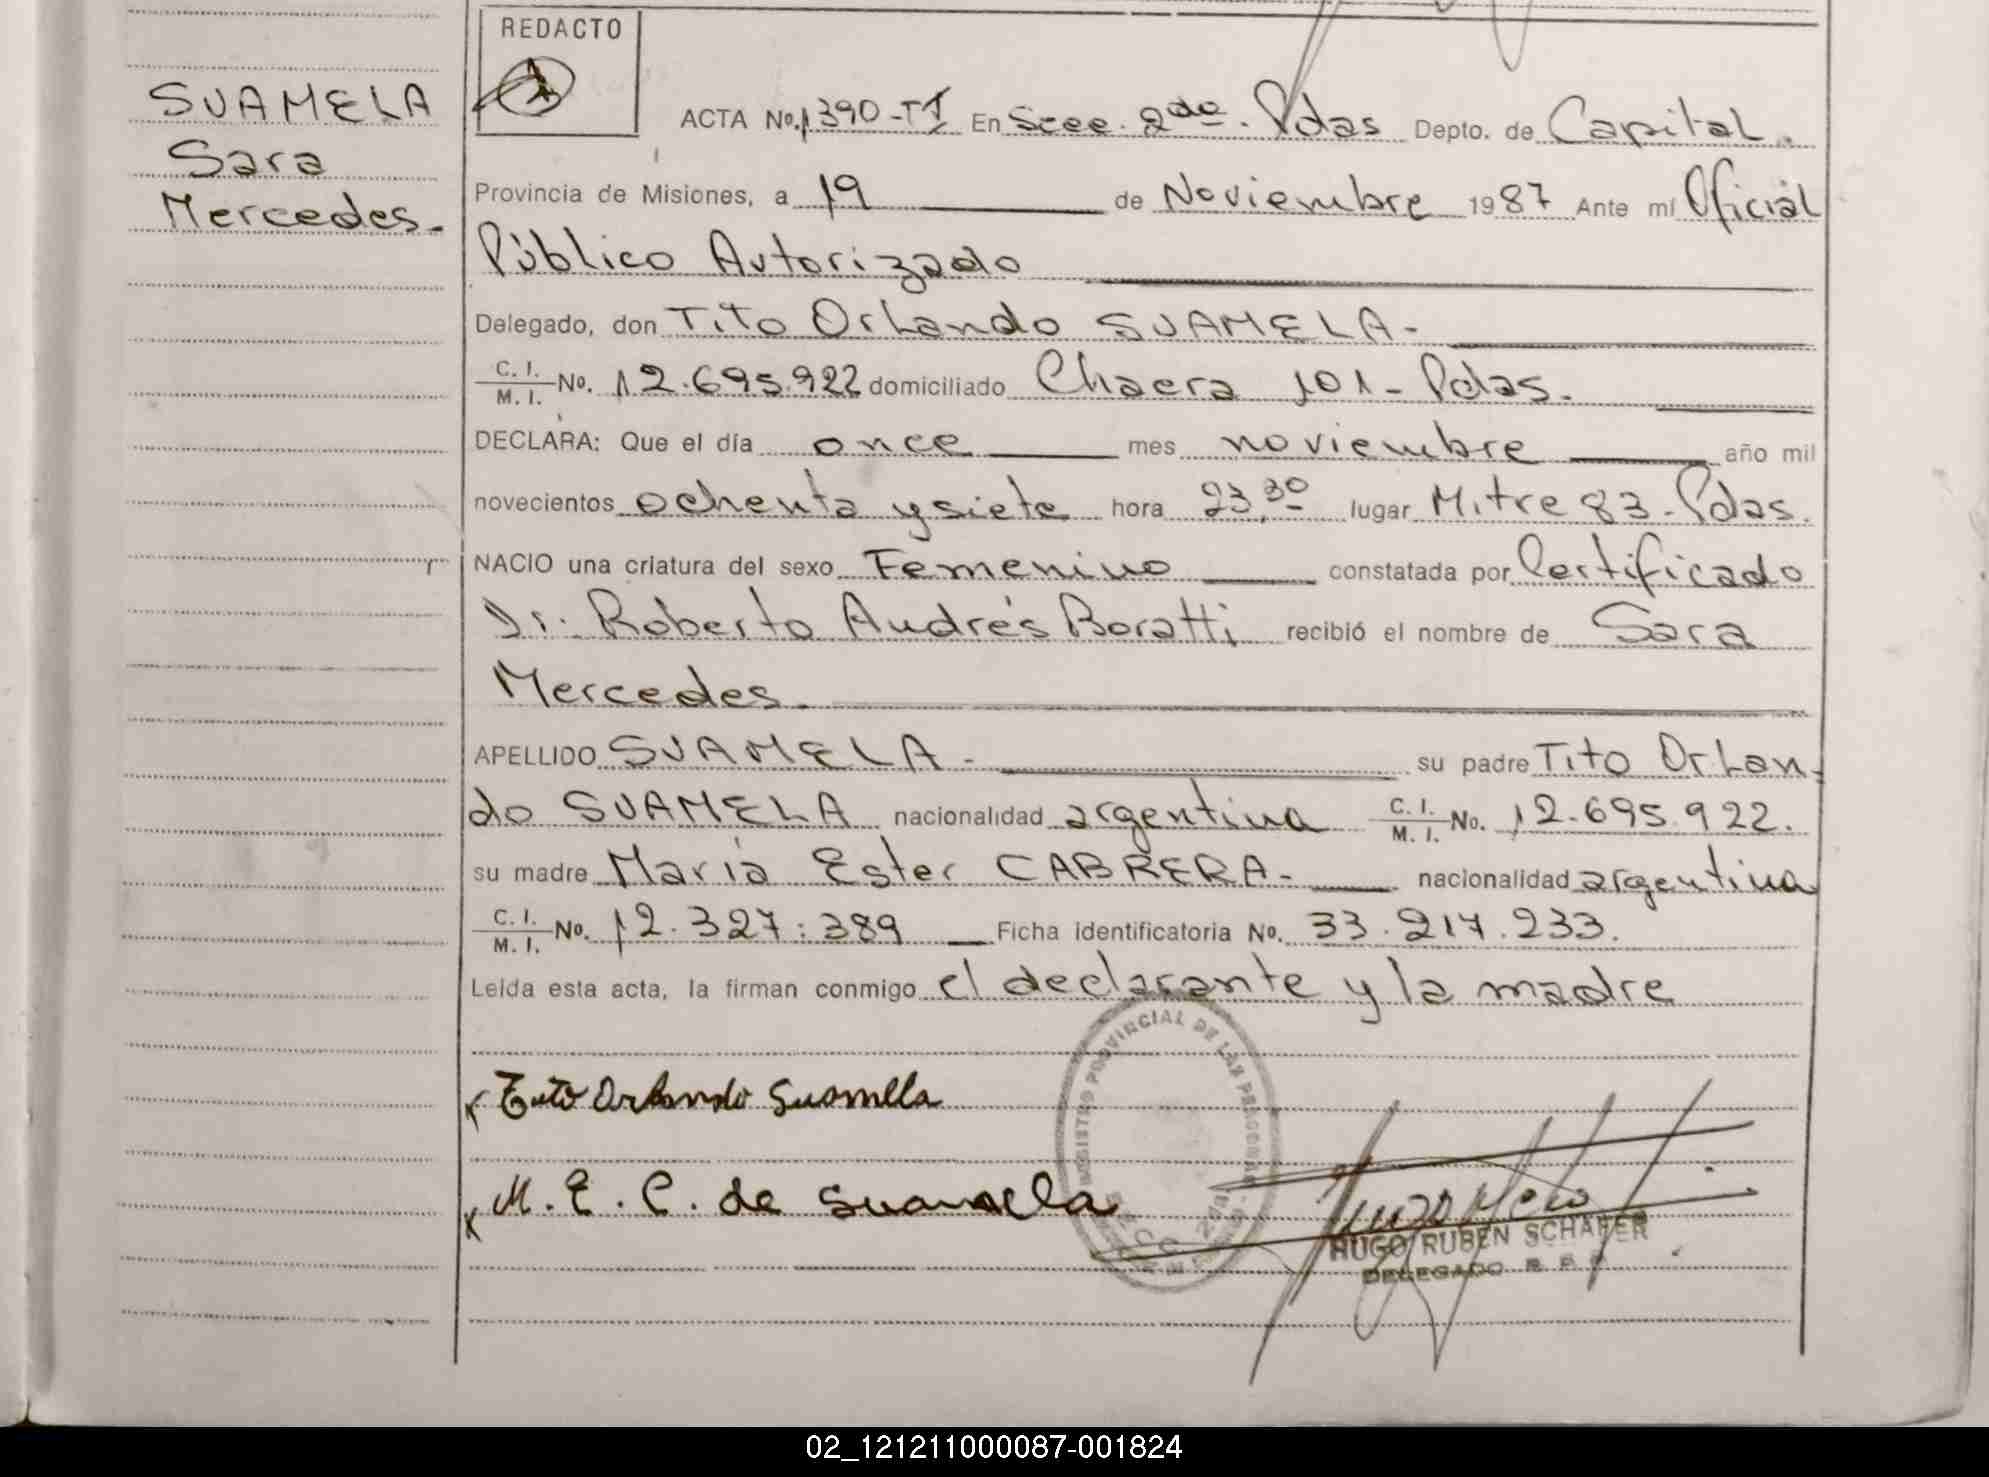 REDACTO
SUAMELA
Sara
Mercedes.
ACTA No. 1390-T1 En Scee. 2da. Pdas Depto. de Capital.
Provincia de Misiones, a 19 de Noviembre 1987 Ante mí Oficial
Público Autorizado
Delegado, don Tito Orlando SUAMELA-
C. I. / M. I. No. 12.695.922 domiciliado Chacra 101- Pdas.
DECLARA: Que el día once mes noviembre año mil
novecientos ochenta y siete hora 23,30 lugar Mitre 83-Pdas.
NACIO una criatura del sexo Femenino constatada por Certificado
Dr. Roberto Andrés Boratti recibió el nombre de Sara
Mercedes.
APELLIDO SUAMELA- su padre Tito Orlan-
do SUAMELA nacionalidad argentina C. I. / M. I. No. 12.695.922.
su madre María Ester CABRERA- nacionalidad argentina
C. I. / M. I. No. 12.327.389 Ficha identificatoria No. 33.217.233.
Leída esta acta, la firman conmigo el declarante y la madre
Tito Orlando Suamella
M. E. C. de Suamella
REGISTRO PROVINCIAL DE LAS PERSONAS
HUGO RUBEN SCHAFER
DELEGADO R. P. P.
02_121211000087-001824